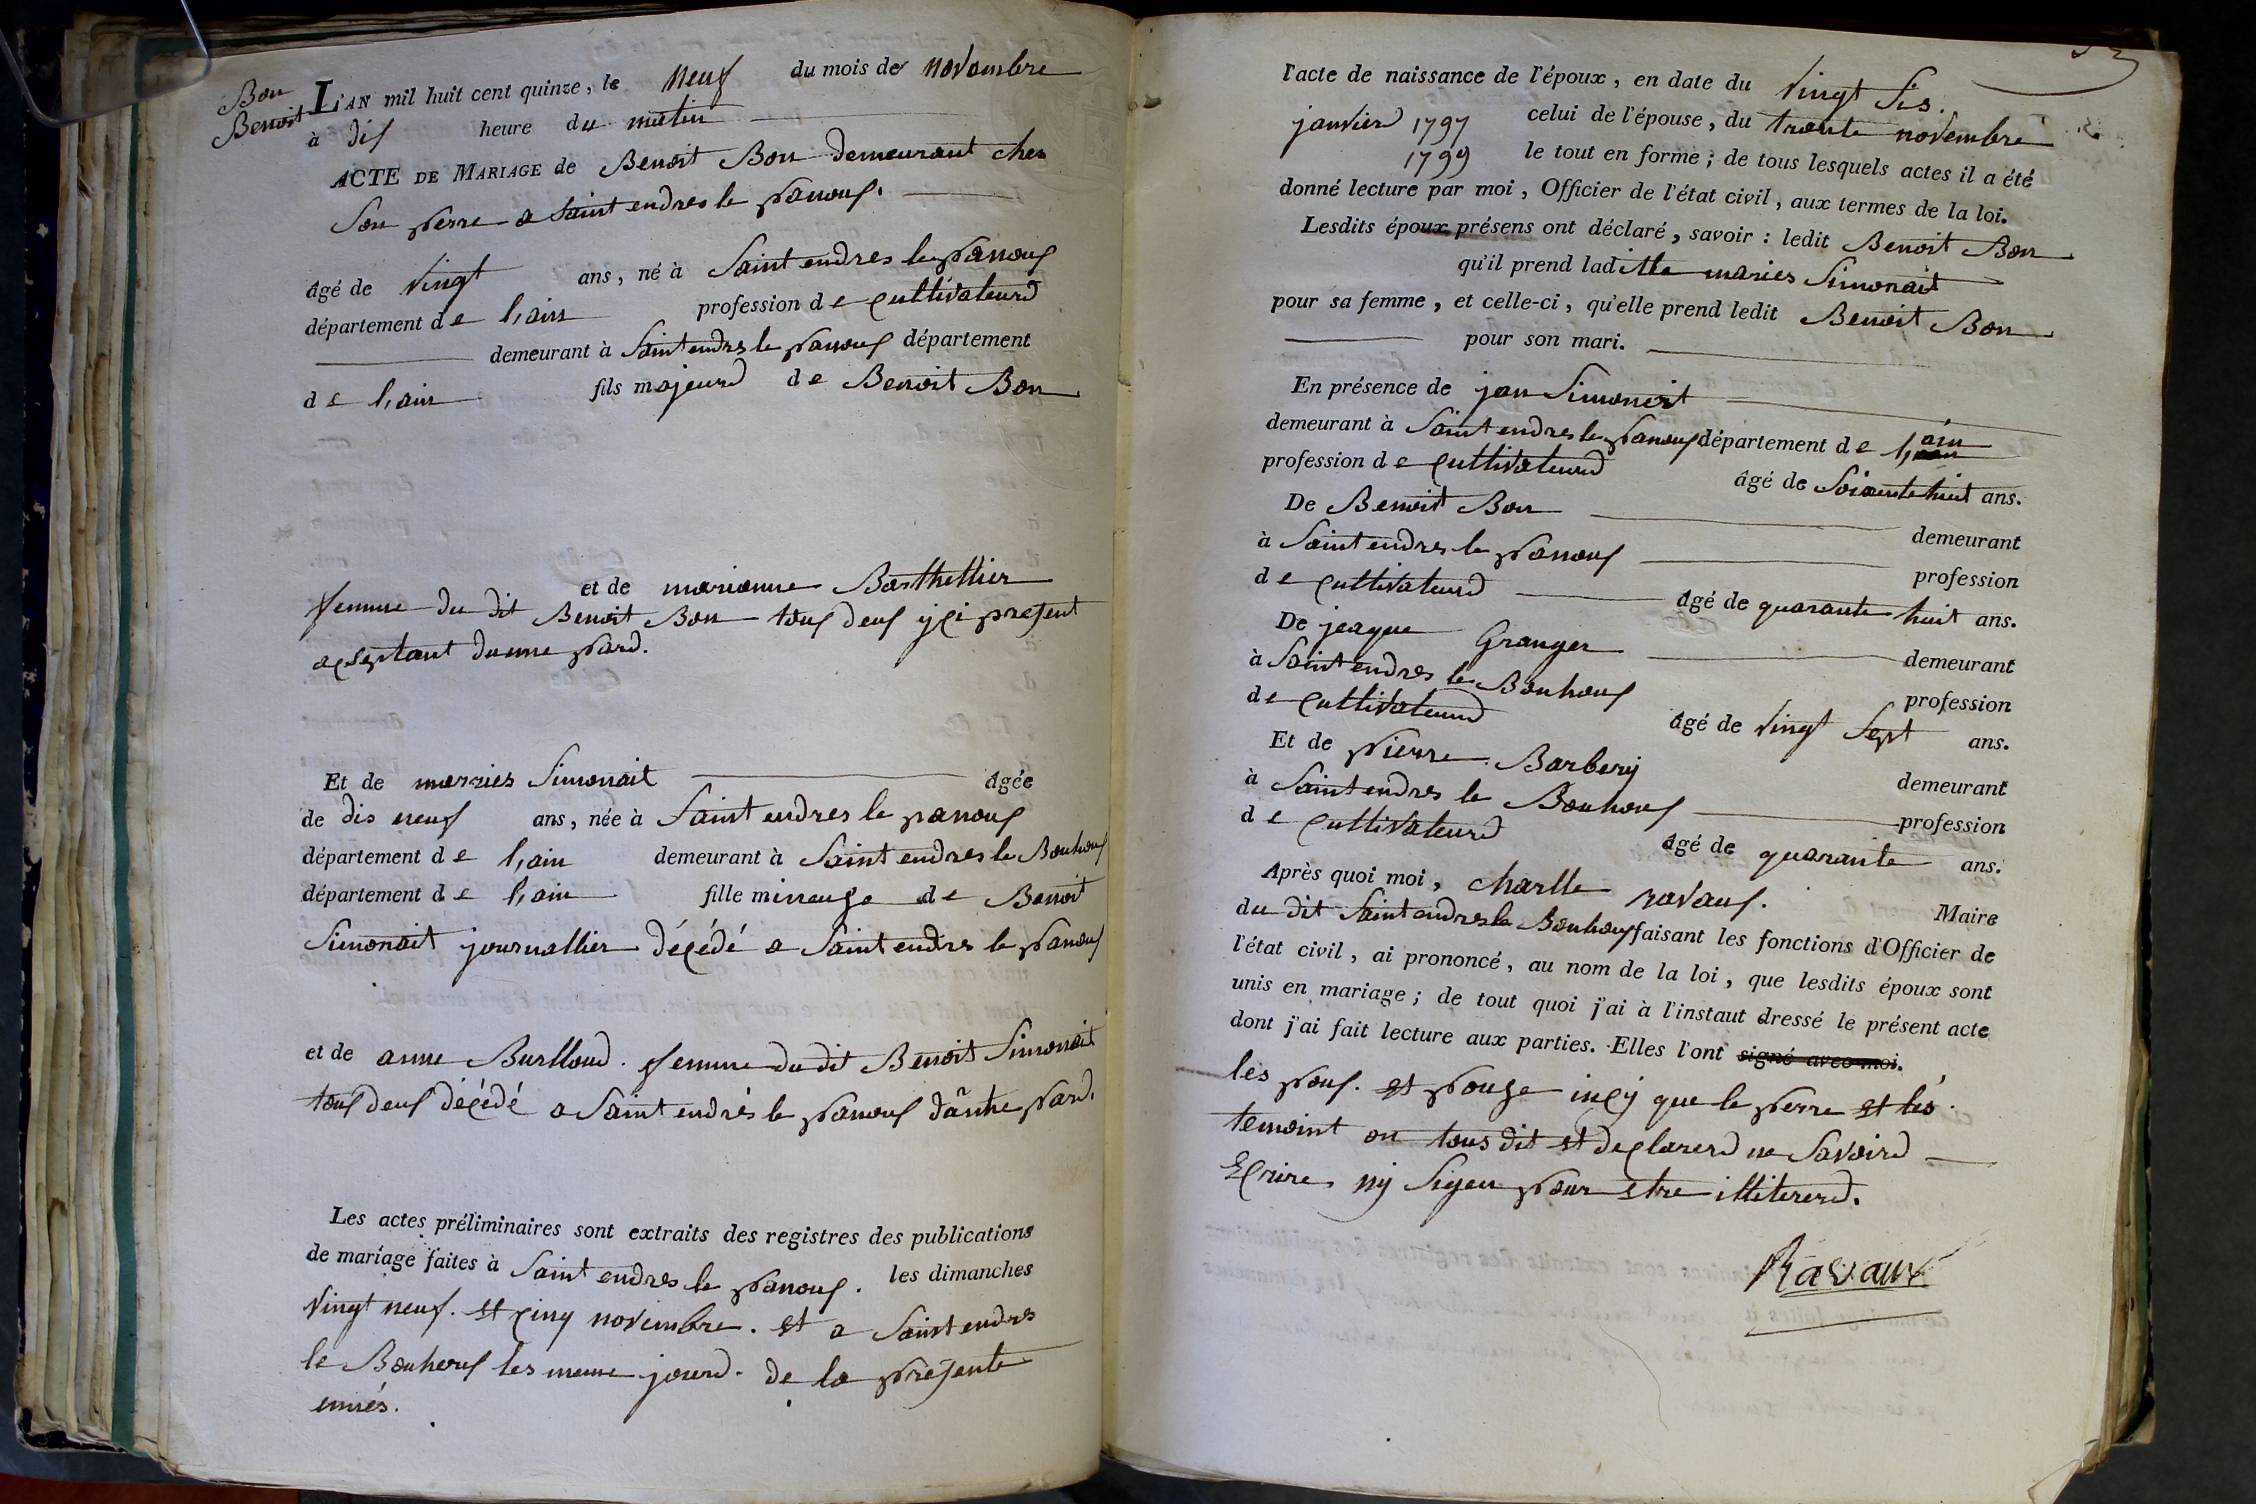 Bon
Benoit
L'AN mil huit cent quinze, le neuf du mois de novambre
à dis heure du matin
ACTE DE MARIAGE de Benoit Bon demeurant ches
son perre a saint endres le panouf.
âgé de vingt ans, né à saint endres le panouf
département de l,ain profession de cultivateurd
demeurant à saint endres le panouf département
de l,ain fils majeurd de Benoit Bon
et de marianne Barthellier
femme du dit Benoit Bon tous deuf yci present
acseptant dunne pard.
Et de marries Simonait âgée
de dis neuf ans, née à saint endres le panouf
département de l,ain demeurant à saint endres le Bouhouf
département de l,ain fille minneuse de Benoit
Simonait journallier décédé a saint endres le panouf
et de anne Burlloud. femme du dit Benoit Simonait
tous deuf décédé a saint endrés le panouf dautre pard.
Les actes préliminaires sont extraits des registres des publications
de mariage faites à saint endres le panouf. les dimanches
vingt neuf. et cinq novembre. et a saint endres
le Bouhouf les meme jourd. de la presente
année.
l'acte de naissance de l'époux, en date du vingt sis.
janvier 1797 celui de l'épouse, du trante novembre
1799 le tout en forme; de tous lesquels actes il a été
donné lecture par moi, Officier de l'état civil, aux termes de la loi.
Lesdits époux présens ont déclaré, savoir: ledit Benoit Bon
qu'il prend laditte maries Simonait
pour sa femme, et celle-ci, qu'elle prend ledit Benoit Bon
pour son mari.
En présence de jan Simonoit
demeurant à saint endres le panouf département de l,ain
profession de cultivateurd âgé de soixante huit ans.
De Benoit Bon demeurant
à saint endres le panouf profession
de cultivateurd âgé de quarante huit ans.
De jeaque Granger demeurant
à saint endres le Bouhouf profession
de cultivateurd âgé de vingt sept ans.
Et de pierre Barbery demeurant
à saint endres le Bouhouf profession
de cultivateurd âgé de quarante ans.
Après quoi moi, charlle ravauf. Maire
du dit saint endres le Bouhouf faisant les fonctions d'Officier de
l'état civil, ai prononcé, au nom de la loi, que lesdits époux sont
unis en mariage; de tout quoi j'ai à l'instaut dressé le présent acte
dont j'ai fait lecture aux parties. Elles l'ont signé avec moi.
les pouf. et pouse incy que le perre et les
temoint on tous dit et declarerd ne savoird
Ecrire ny signer pour etre illitererd.
Ravaux